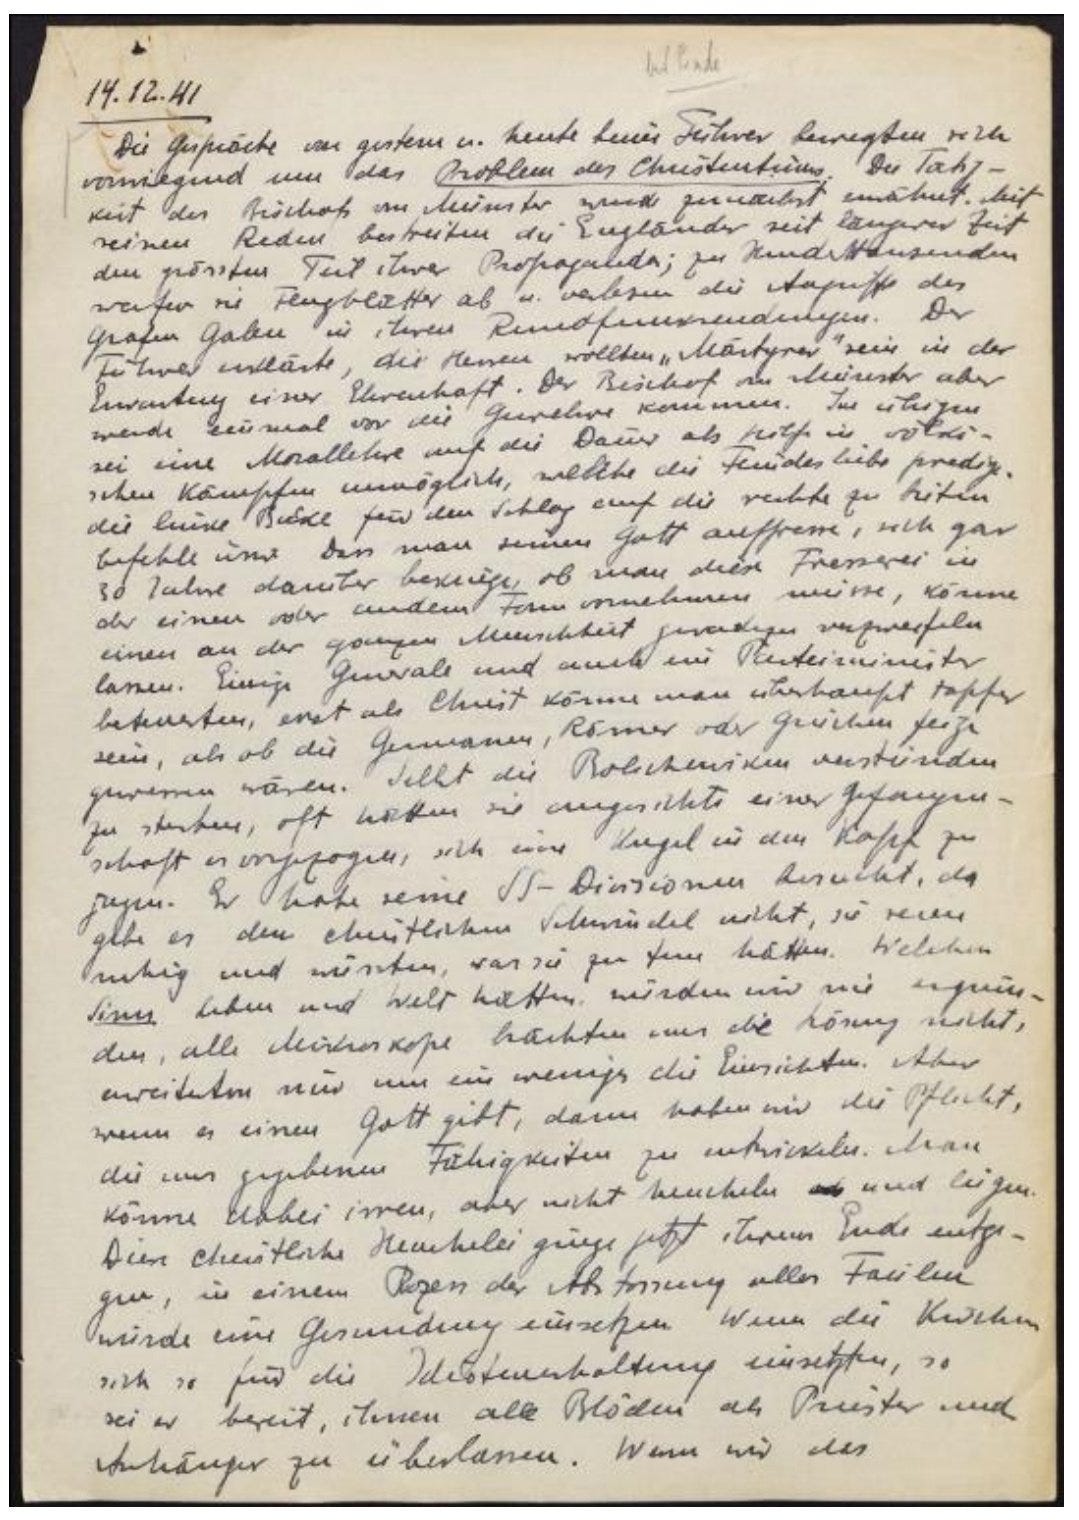 14.12.41
Die Gespräche von gestern u. heute beim Führer bewegten sich
vorwiegend um das Problem des Christentums. Die Tätig-
keit des Bischofs von Münster wurde zunächst erwähnt. Mit
seinen Reden bestreiten die Engländer seit längerer Zeit
den grössten Teil ihrer Propaganda; zu Hunderttausenden
werfen sie Flugblätter ab u. verlesen die Angriffe des
Grafen Galen in ihren Rundfunksendungen. Der
Führer erklärte, die Herren wollten „Märtyrer" sein in der
Erwartung einer Ehrenhaft. Der Bischof von Münster aber
werde einmal vor die Gewehre kommen. Im übrigen
sei eine Morallehre auf die Dauer als Hilfe in völki-
schen Kämpfen unmöglich, welche die Feindesliebe predige,
die linke Backe für den Schlag auf die rechte zu bieten
befehle usw. Dass man seinen Gott auffresse, sich gar
30 Jahre darüber bekriege, ob man diese Fresserei in
der einen oder andern Form vornehmen müsse, könne
einen an der ganzen Menschheit geradezu verzweifeln
lassen. Einige Generale und auch ein Parteiminister
beteuerten, erst als Christ könne man überhaupt tapfer
sein, als ob die Germanen, Römer oder Griechen feige
gewesen wären. Selbst die Bolschewiken verstünden
zu sterben, oft hätten sie angesichts einer Gefangen-
schaft es vorgezogen, sich eine Kugel in den Kopf zu
jagen. Er habe seine SS-Divisionen besucht, da
gebe es den christlichen Schwindel nicht, sie seien
ruhig und wüssten, was sie zu tun hätten. Welchen
Sinn Leben und Welt hätten, würden wir nie ergrün-
den, alle Mikroskope brächten uns die Lösung nicht,
erweiterten nur um ein weniges die Einsichten. Aber
wenn es einen Gott gibt, dann haben wir die Pflicht,
die uns gegebenen Fähigkeiten zu entwickeln. Man
könne dabei irren, aber nicht heucheln und lügen.
Diese christliche Heuchelei ginge jetzt ihrem Ende entge-
gen, in einem Prozess der Abstossung alles Faulen
würde eine Gesundung einsetzen Wenn die Kirchen
sich so für die Idiotenerhaltung einsetzten, so
sei er bereit, ihnen alle Blöden als Priester und
Anhänger zu überlassen. Wenn wir das